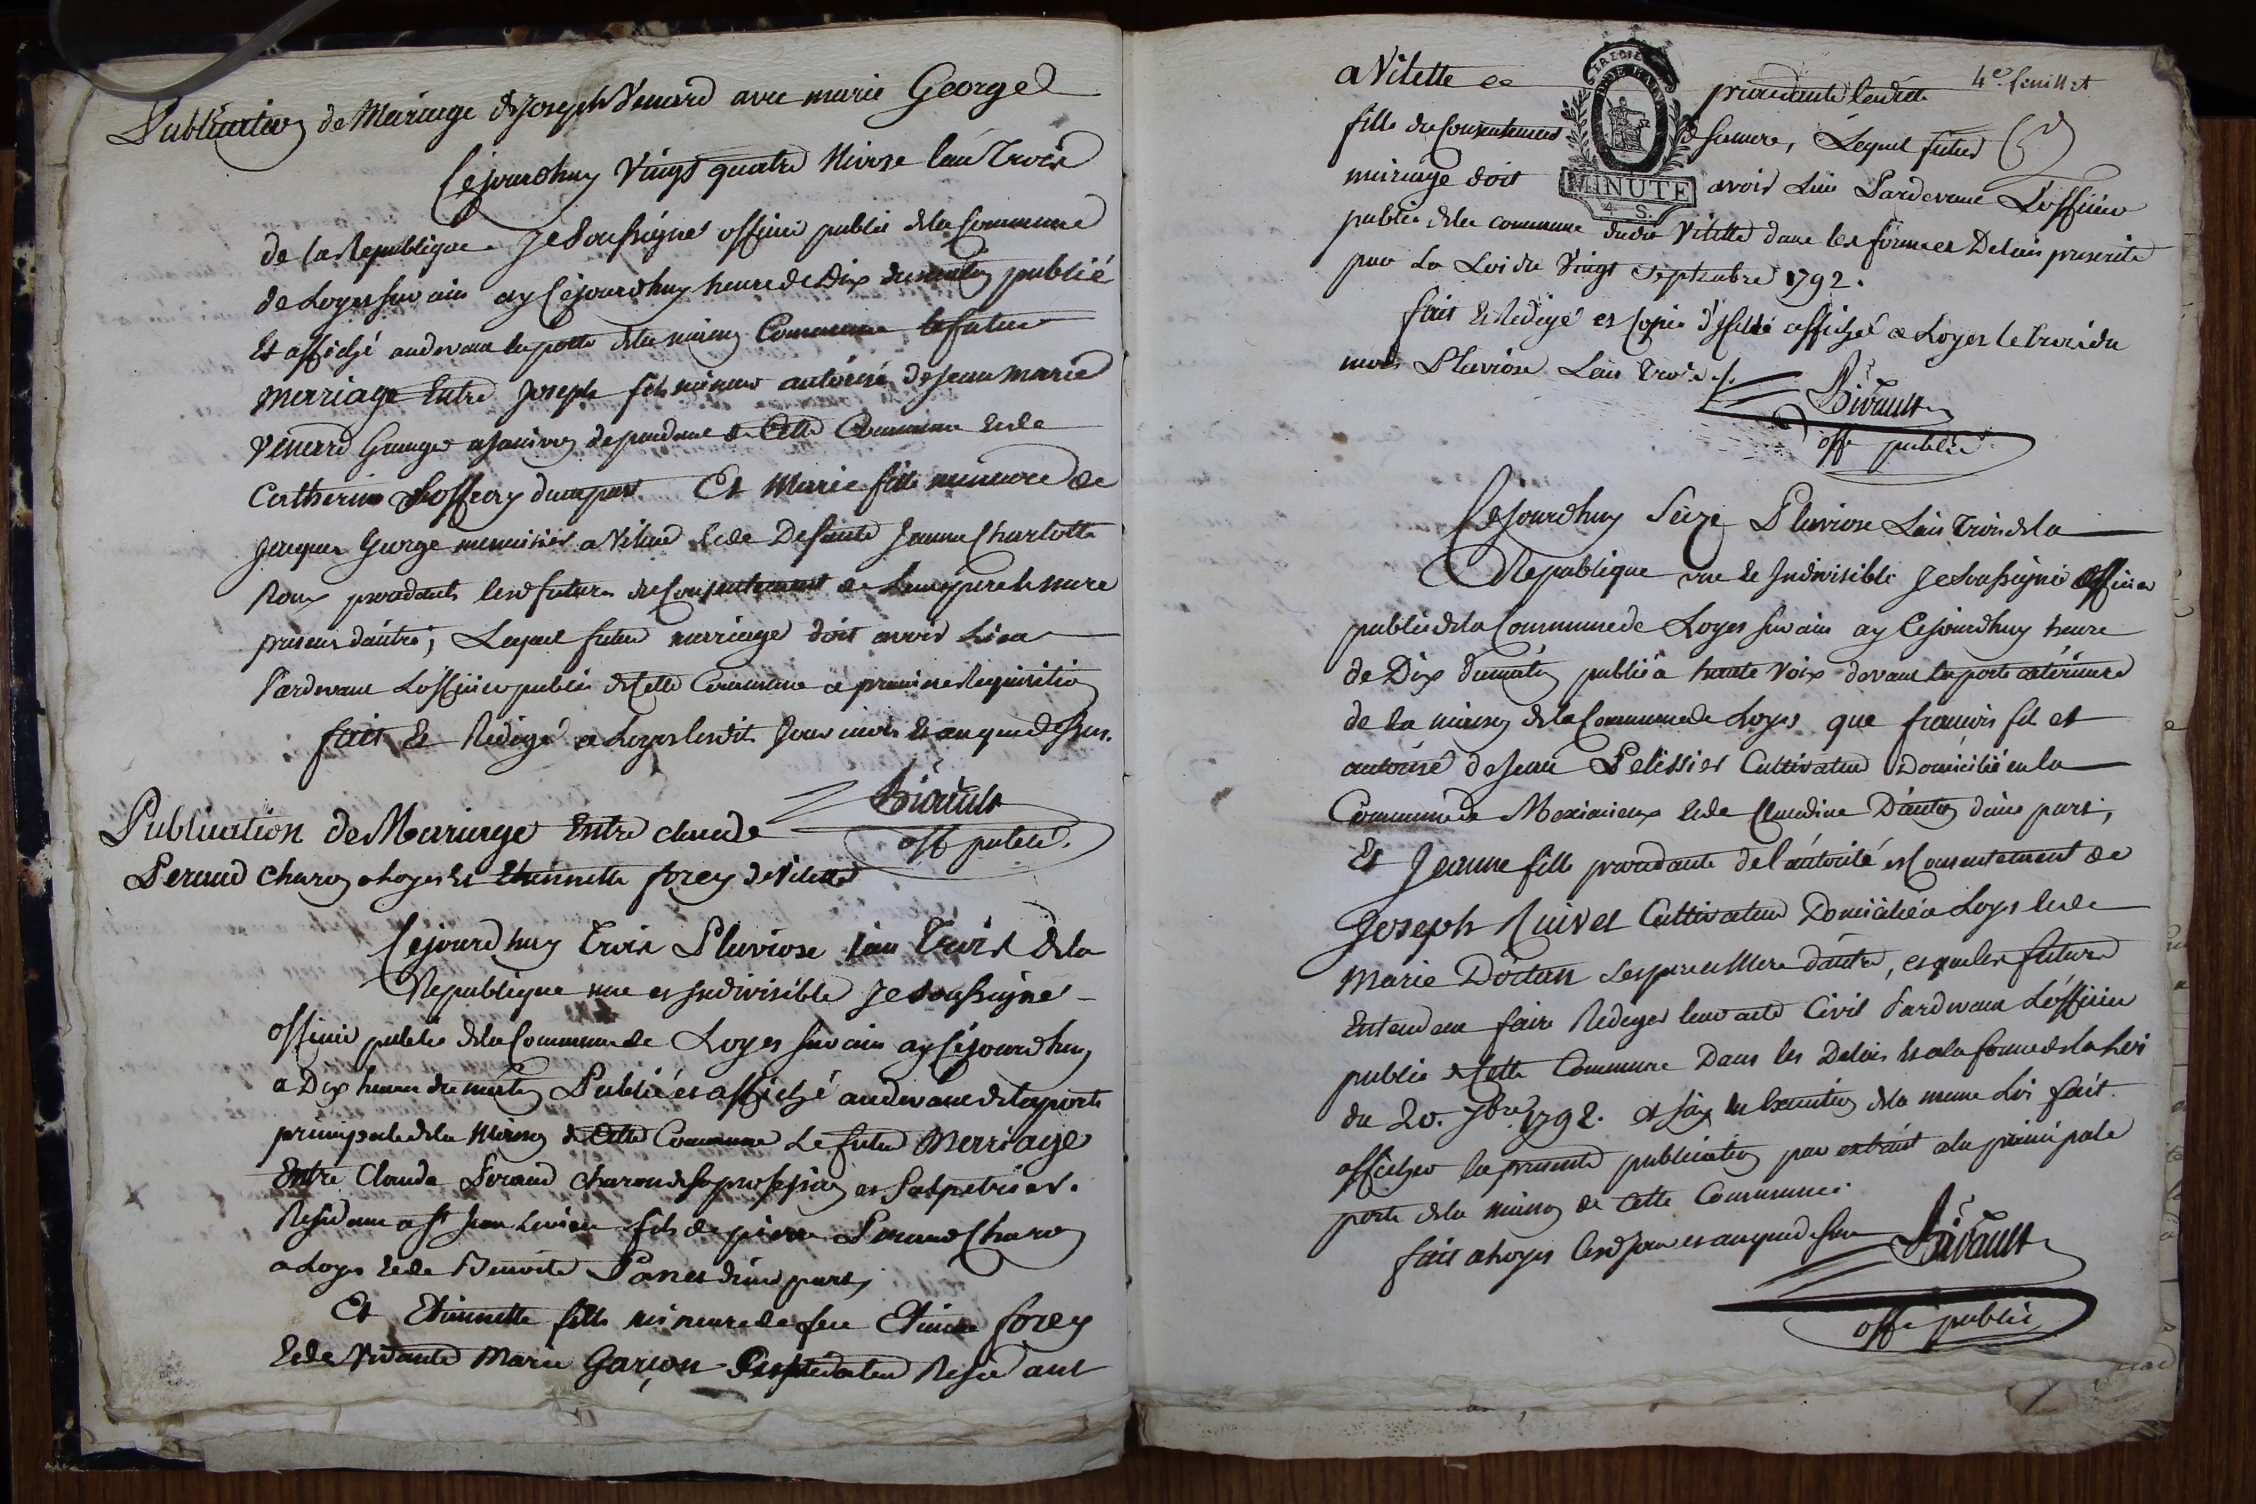 Publication de Mariage de Joseph Venard avec marie George
Cejourdhuy Vingt quatre Nivose l'an Trois
de la Republique Je Soussigné officier public de la Commune
de Loyes sur ain ay Cejourdhuy heure de Dix du matin publié
Et affiché audevant la porte de la maison Commune le futur
Mariage Entre Joseph fils mineur autorisé de Jean Marie
Venard Granger a dependant de Cette Commune Et de
Catherine d'une part Et Marie fille mineure de
Jacques George menuisier a Et de Defunte Jeanne Charlotte
Roux procedants lesd futurs du Consentement de Leurs pere et mere
presents d'autre, Lequel futur mariage doit avoir Lieu
Pardevant L'officier public de Cette Commune a premiere Requisition
fait Et Redigé a Loyes lesdits Jour mois Et an que dessus.
Bivault
off public.
Publication de Mariage Entre claude
Peraud charon a Loyes Et Etiennette forey de Vilette
Cejourdhuy Trois Pluviose l'an Trois de la
Republique une et Indivisible Je Soussigné
officier public de la Commune de Loyes sur ain ay Cejourdhuy
a Dix heures du matin Publié et affiché audevant de la porte
principale de la Maison de Cette Commune Le futur Mariage
Entre Claude Peraud charon de Sa profession et Salpetrier.
Residant a St Jean fils de pierre Peraud Charon
a Loyes Et de Benoite Panet d'une part;
Et Etiennette fille mineure de feu Etienne forey
Et de Vivante Marie Garçon Residant
4e feuillet
a Vilette et procedante ladite
fille du Consentement de sa mere, Lequel futur
MINUTE
4. S.
mariage doit avoir Lieu Pardevant L'officier
public de la commune dudit Vilette dans les formes et Delais prescrits
par La Loi du Vingt Septembre 1792.
fait Et Redigé et Copie d'Icelle affiché a Loyes le trois du
mois Pluviose L'an Trois ./.
Bivault
off public
Cejourdhuy Seize Pluviose L'an Trois de la
Republique une Et Indivisible Je Soussigné officier
public de la Commune de Loyes sur ain ay Cejourdhuy heure
de Dix du matin publié a haute Voix devant la porte exterieure
de la maison de la Commune de Loyes que francois fils et
autorisé de Jean Pelissier Cultivateur Domicilié en la
Commune de Meximieux Et de Claudine d'une part;
Et Jeanne fille procedante de l'autorité et Consentement de
Joseph Cultivateur Domicilié a Loyes Et de
Marie ses pere et Mere d'autre, esquels futurs
Entendent faire Rediger leur acte Civil Pardevant L'officier
public de Cette Commune Dans les Delais Et a la forme de la Loi
du 20. 7bre 1792. et j'ay en Execution de la meme Loi fait
afficher la presente publication par extrait a la principale
porte de la maison de Cette Commune.
fait a Loyes lesd jour et an que dessus
Bivault
off public